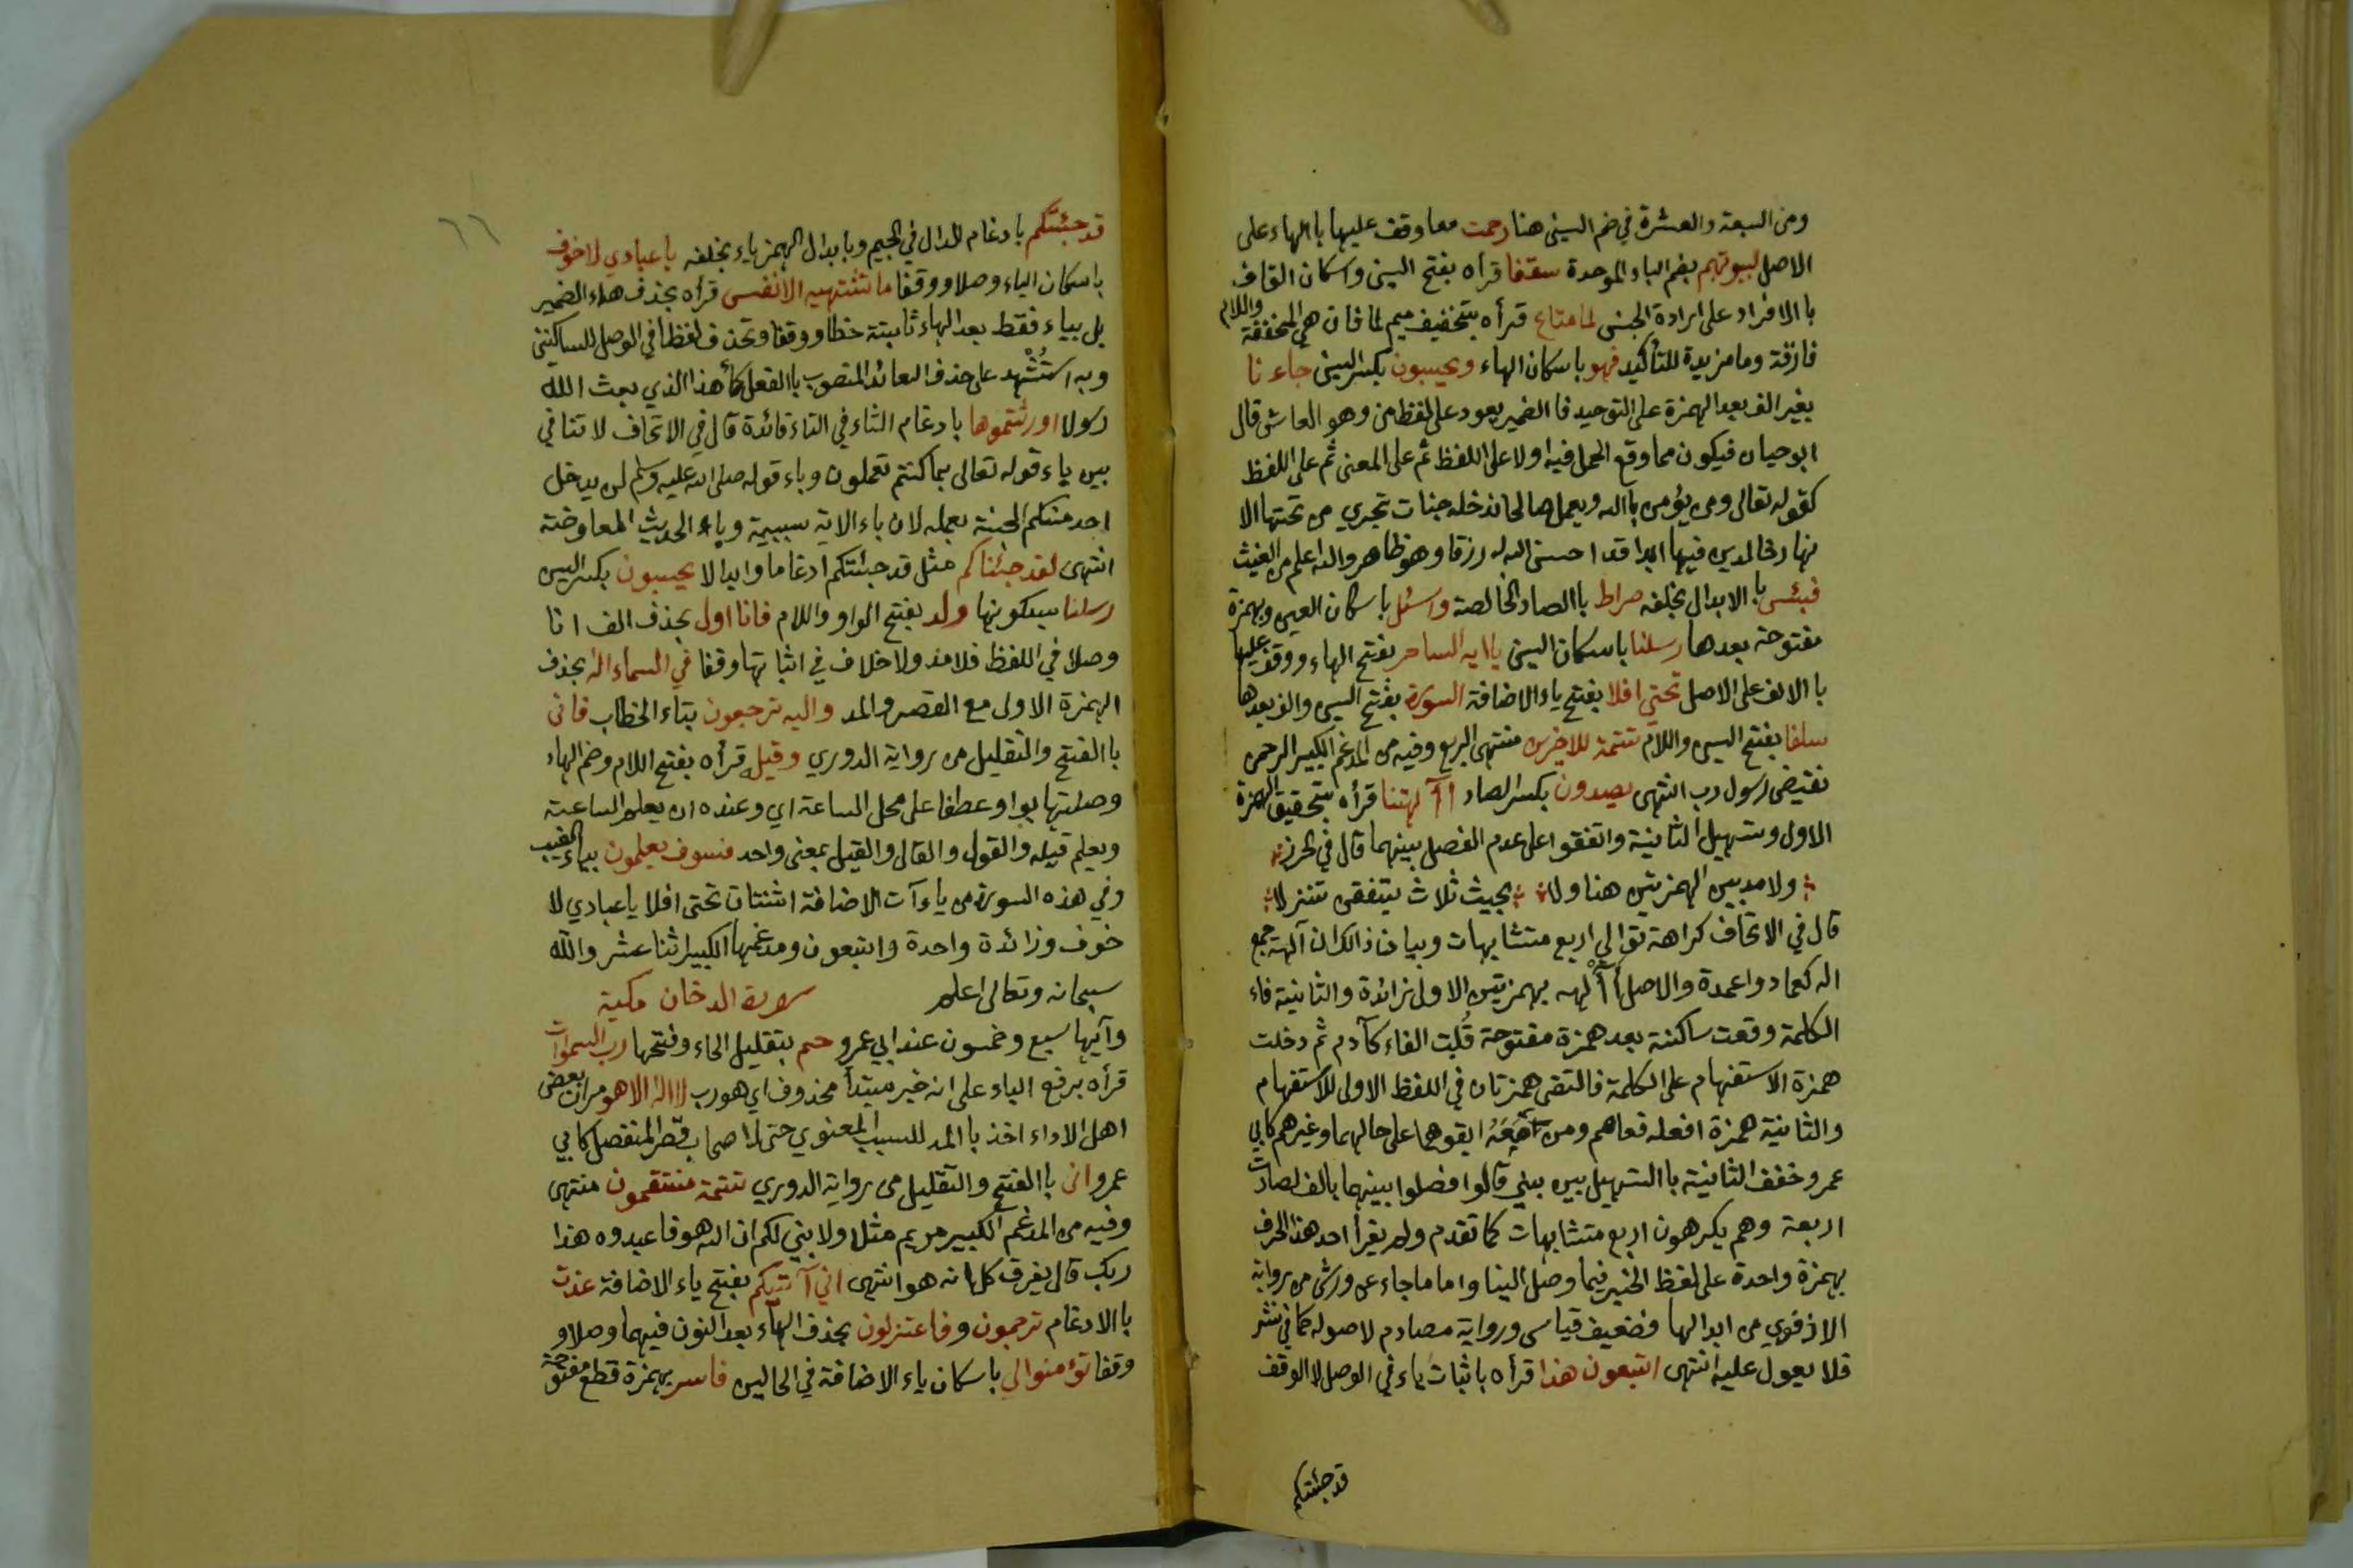 ومن السبعة والعشرة في ضم السين هنا رحمت معا وقف عليها باالهاء على
الاصل لبيوتهم بضم الباء الموحدة سقفا قرأه بفتح السين واسكان القاف
باالافراد على ارادة الجنس لما متاع قرأه بتخفيف ميم لما فان هي المخففة واللام
فارقة وما مزيدة للتأكيد فهو باسكان الهاء ويحسبون بكسر السين جاءنا
بغير الف بعد الهمزة على التوحيد فاالضمير يعود على لفظ من وهو العاشي قال
ابو حيان فيكون مما وقع الحمل فيه اولا على اللفظ ثم على المعنى ثم على اللفظ
كقوله تعالى ومن يؤمن باالله ويعمل صالحا ندخله جنات تجري من تحتها الا
نهار خالدين فيها ابدا قد احسن الله له رزقا وهو ظاهر والله اعلم من الغيث
فبئس باالابدال بخلفه صراط باالصاد الخالصة واسئل باسكان السين وبهمزة
مفتوحة بعدها رسلنا باسكان السين ياايه الساحر بفتح الهاء ووقف عليها
باالالف على الاصل تحتي افلا بفتح ياء الاضافة اسورة بفتح السين والف بعدها
سلفا بفتح السين واللام تتمة للاخرين منتهى الربع وفيه من المدغم الكبير الرحمن
نقيض رسول رب انتهى يصدون بكسر الصاد أآلهتنا قرأه بتحقيق الهمزة
الاولى وتسهيل الثانية واتفقوا على عدم الفصل بينهما قال في الحرز
ولا مد بين الهمزتين هنا ولا بحيث ثلاث يتفقن تنزلا
قال في الاتحاف كراهة توالي اربع متشابهات وبيان ذالك ان آلهة جمع
اله كعماد واعمدة والاصل أألهه بهمزتين الاولى زائدة والثانية فاء
الكلمة وقعت ساكنة بعد همزة مفتوحة قُلبت الفاء كآدم ثم دخلت
همزة الاستفهام على الكلمة فالتقى همزتان في اللفظ الاولى للاستفهام
والثانية همزة افعله فعاصم ومن معه ابقوهما على حالهما وغيرهم كابي
عمرو خفف الثانية باالتسهيل بين بين قالوا فصلوا بينهما بالف لصارت
اربعة وهم يكرهون اربع متشابهات كما تقدم ولم يقرأ احد هذا الحرف
بهمزة واحدة على لفظ الخبر فيما وصل الينا واما ما جاء عن ورش من رواية
الاذفوي من ابدالها فضعيف قياسا ورواية مصادم لاصوله كما في نشر
فلا يعول عليه انتهى اتبعون هذا قرأه باثبات ياء في الوصل لا الوقف
قد جئتكم
٦٦
قد جئتكم بادغام الدال في الجيم وبابدال الهمز ياء بخلفه ياعبادي لا خوف
باسكان الياء وصلا ووقفا ما تشتهيه الانفس قرأه بحذف هاء الضمير
بل بياء فقط بعد الهاء ثابتة خطا ووقفا وتحذف لفظا في الوصل للساكنين
وبه استُشْهد على حذف العائد المنصوب باالفعل كأهذا الذي بعث الله
رسولا اورثتموها بادغام الثاء في التاء فائدة قال في الاتحاف لا تنافي
بين باء قوله تعالى بما كنتم تعملون وباء قوله صلى الله عليه وسلم لن يدخل
احد منكم الجنة بعمله لان باء الاية سببية وباء الحديث المعاوضة
انتهى لقد جئناكم مثل قد جئتكم ادغاما وابدالا يحسبون بكسر السين
رسلنا بسكونها ولد بفتح الواو واللام فانا اول بحذف الف انا
وصلا في اللفظ فلا مد ولا خلاف في اثباتها وقفا في السماء اله بحذف
الهمزة الاولى مع القصر والمد واليه ترجعون بتاء الخطاب فانى
باالفتح والتقليل من رواية الدوري وقيله قرأه بفتح اللام وضم الهاء
وصلتها بواو عطفا على محل الساعة اي وعنده ان يعلم الساعة
ويعلم قيله والقول والقال والقيل بمعنى واحد فسوف يعلمون بياء الغيب
وفي هذه السورة من ياءآت الاضافة اثنتان تحتى افلا ياعبادي لا
خوف وزائدة واحدة واتبعون ومدغمها الكبير اثنا عشر والله
سبحانه وتعالى اعلم سورة الدخان مكية
وآيها سبع وخمسون عند ابي عمرو حم بتقليل الحاء وفتحها رب السموات
قرأه برفع الباء على انه خبر مبتدأ محذوف اي هو رب لا اله الا هو مر ان بعض
اهل الاداء اخذ باالمد للسبب المعنوي حتى لاصحاب قصر المنفصل كابي
عمرو انى باالفتح والتقليل من رواية الدوري تتمة منتقمون منتهى
وفيه من المدغم الكبير مريم مثلا ولابين لكم ان الله هو فاعبدوه هذا
ربك قال يفرق كل انه هو انتهى اني آتيكم بفتح ياء الاضافة عذت
باالادغام ترجمون وفاعتزلون بحذف الياء بعد النون فيهما وصلا و
وقفا تؤمنوا لي باسكان ياء الاضافة في الحالين فاسر بهمزة قطع مفتوحة